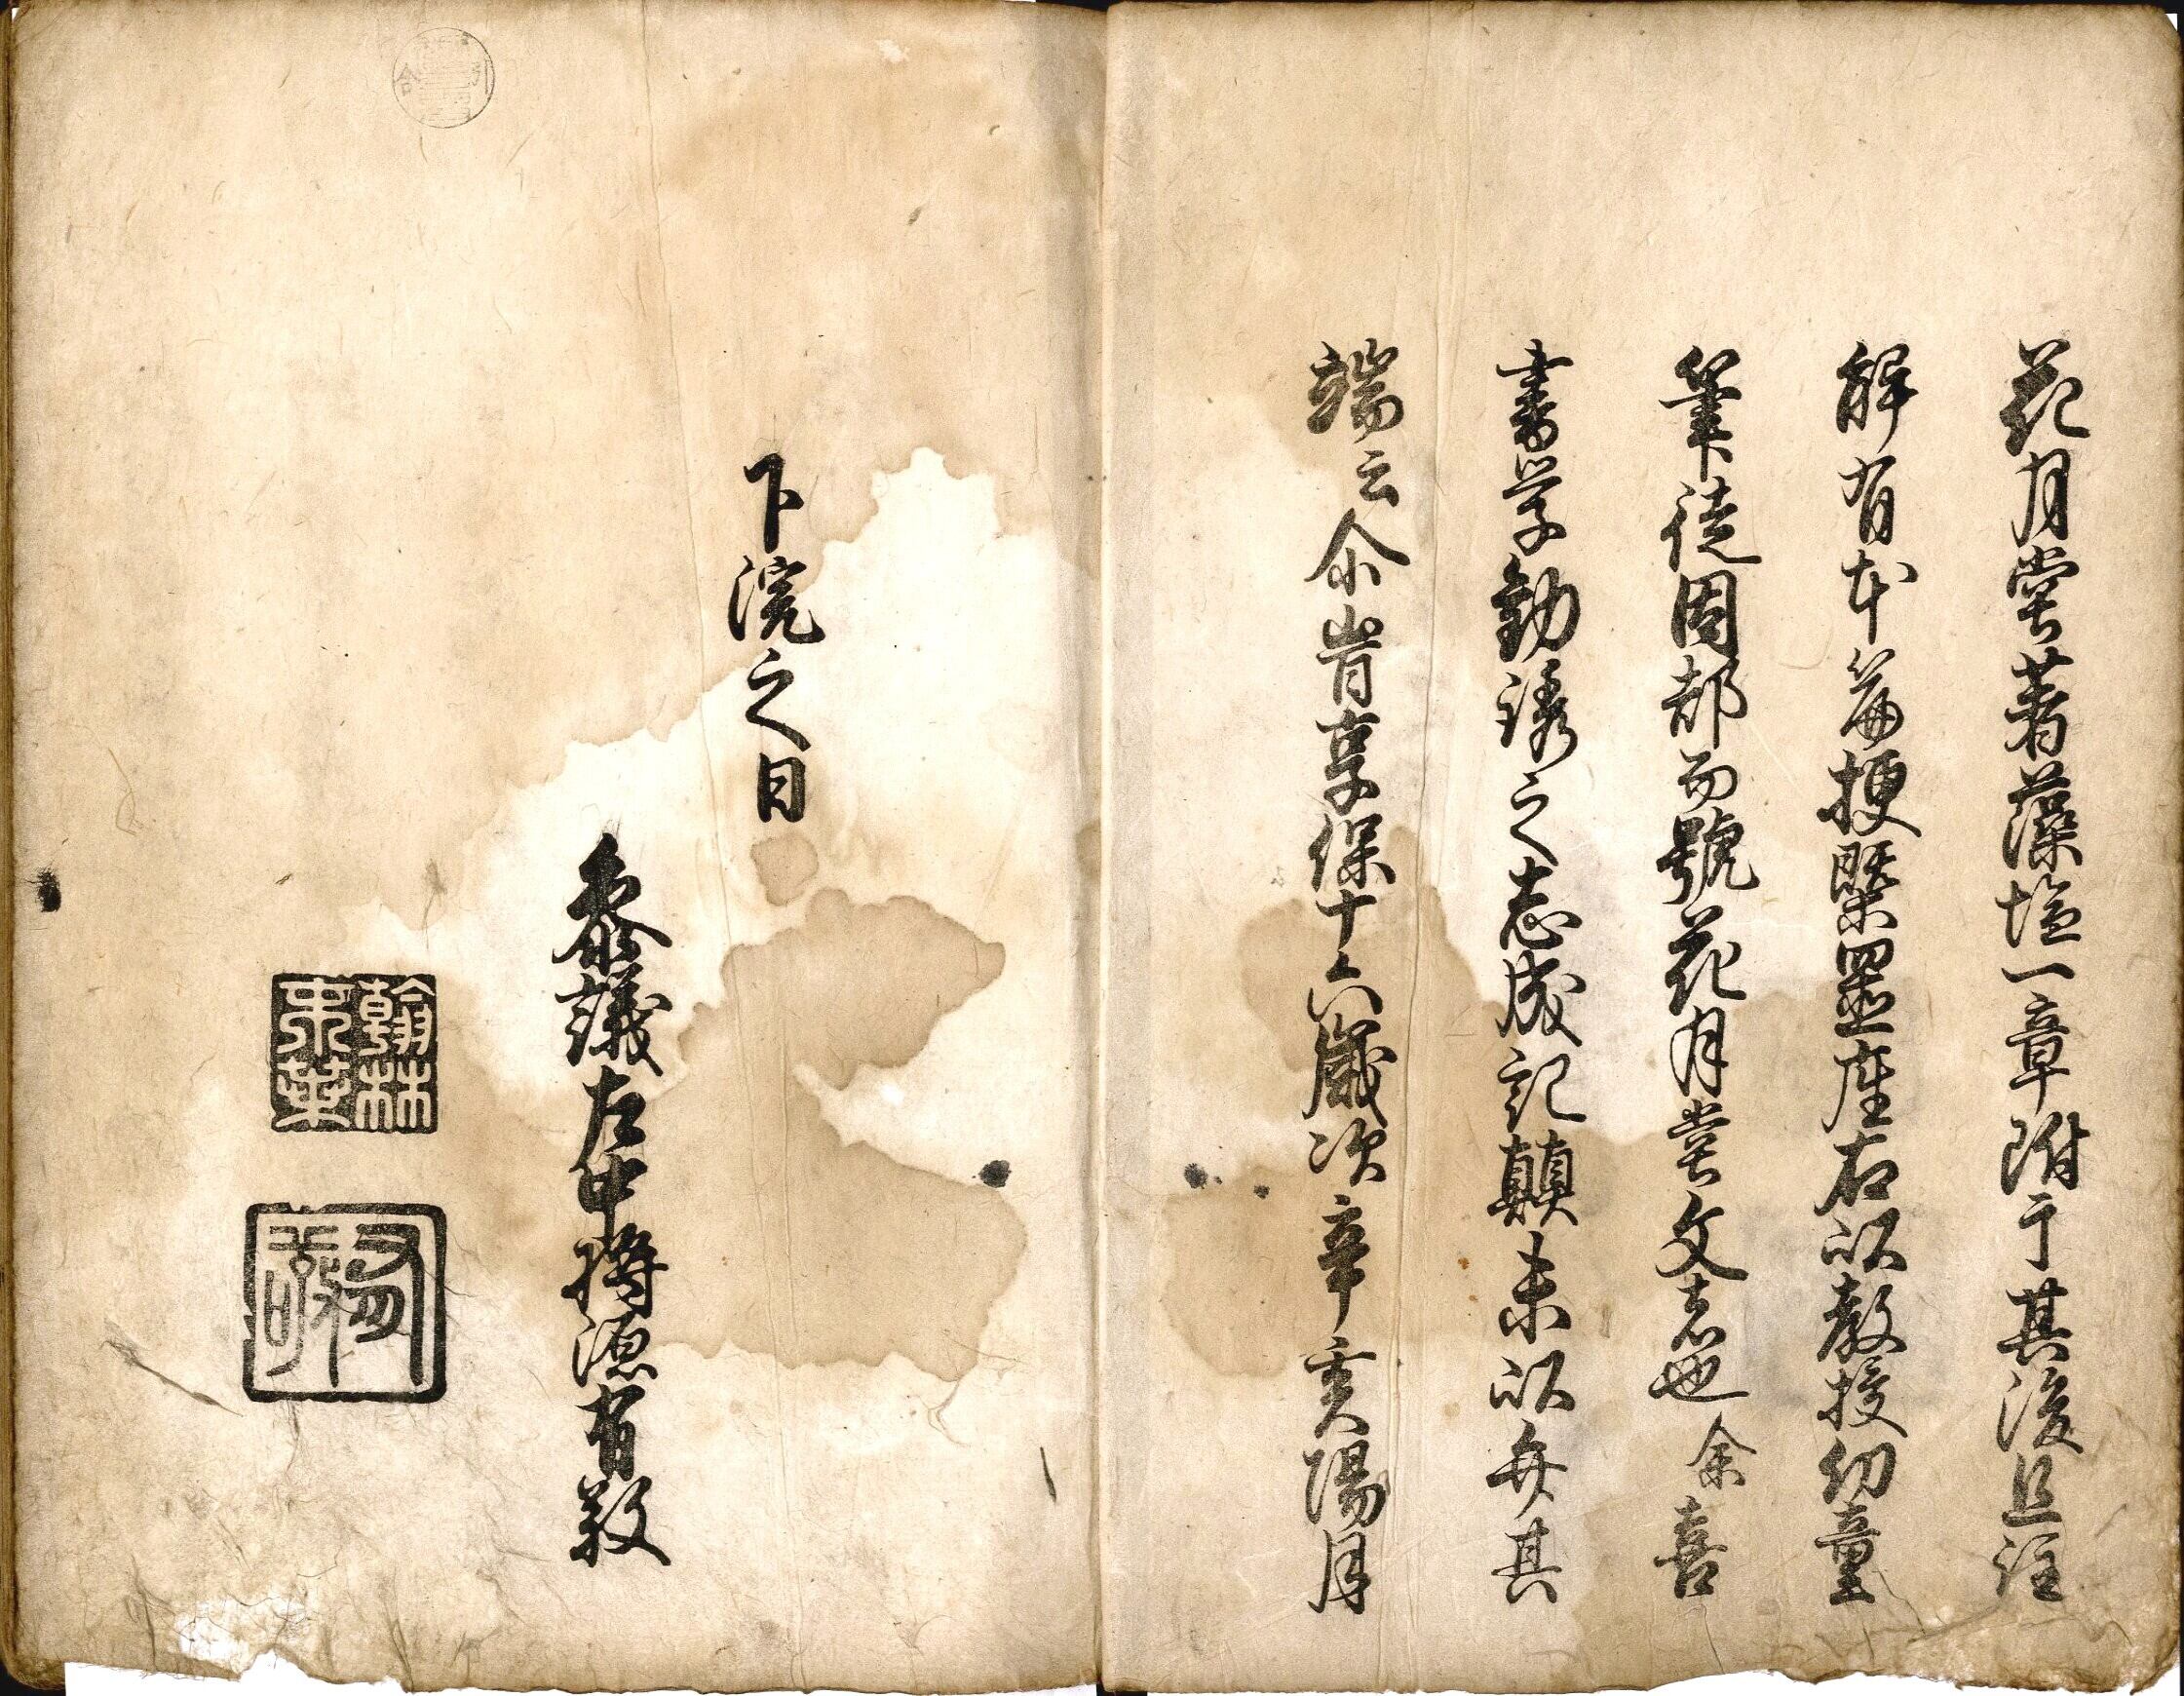 花月堂著藻塩一章附于其後且註
解有本篇梗槩置座右以教授幼童
筆徒因都而號花月堂文志也余喜
書学勧誘之志成記顛末以弁其
端云尒峕享保十六歳次辛亥陽月
下浣之日
参議左中将源有敎
翰林
朱葉